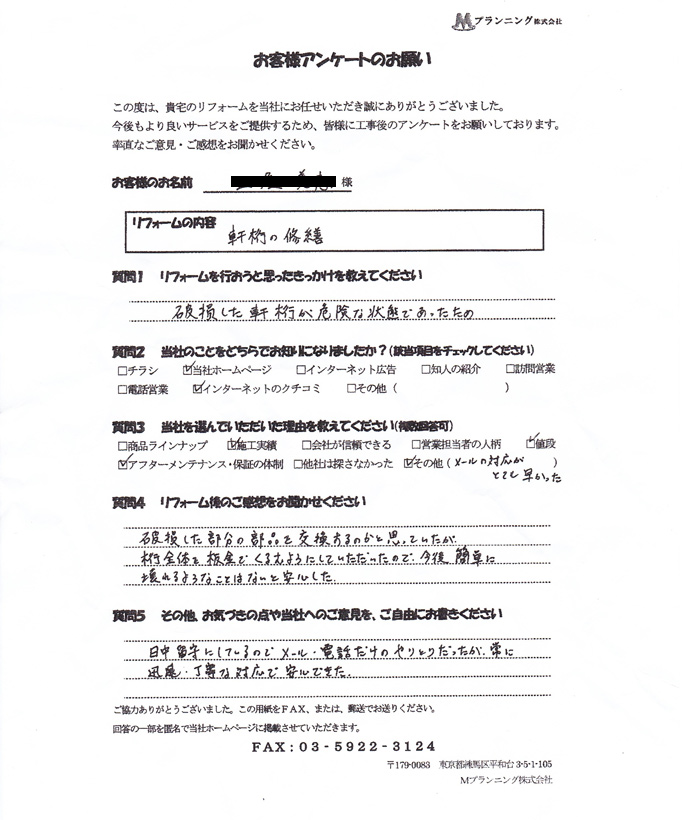 Mプランニング株式会社
お客様アンケートのお願い
この度は、貴宅のリフォームを当社にお任せいただき誠にありがとうございました。
今後もより良いサービスをご提供するため、皆様に工事後のアンケートをお願いしております。
率直なご意見・ご感想をお聞かせください。
お客様のお名前 様
リフォームの内容
軒桁の修繕
質問1 リフォームを行おうと思ったきっかけを教えてください
破損した軒桁が危険な状態であったため
質問2 当社のことをどちらでお知りになりましたか?(該当項目をチェックしてください)
□チラシ ☑当社ホームページ □インターネット広告 □知人の紹介 □訪問営業
□電話営業 ☑インターネットのクチコミ □その他( )
質問3 当社を選んでいただいた理由を教えてください(複数回答可)
□商品ラインナップ ☑施工実績 □会社が信頼できる □営業担当者の人柄 ☑値段
☑アフターメンテナンス・保証の体制 □他社は探さなかった ☑その他(メールの対応が )
とても早かった
質問4 リフォーム後のご感想をお聞かせください
破損した部分の部品を交換するのかと思っていたが、
桁全体を板金でくるむようにしていただいたので、今後簡単に
壊れるようなことはないと安心した。
質問5 その他、お気づきの点や当社へのご意見を、ご自由にお書きください
日中留守にしているのでメール・電話だけのやりとりだったが、常に
迅速・丁寧な対応で安心できた。
ご協力ありがとうございました。この用紙をFAX、または、郵送でお送りください。
回答の一部を匿名で当社ホームページに掲載させていただきます。
FAX:03-5922-3124
〒179-0083 東京都練馬区平和台3-5-1-105
Mプランニング株式会社